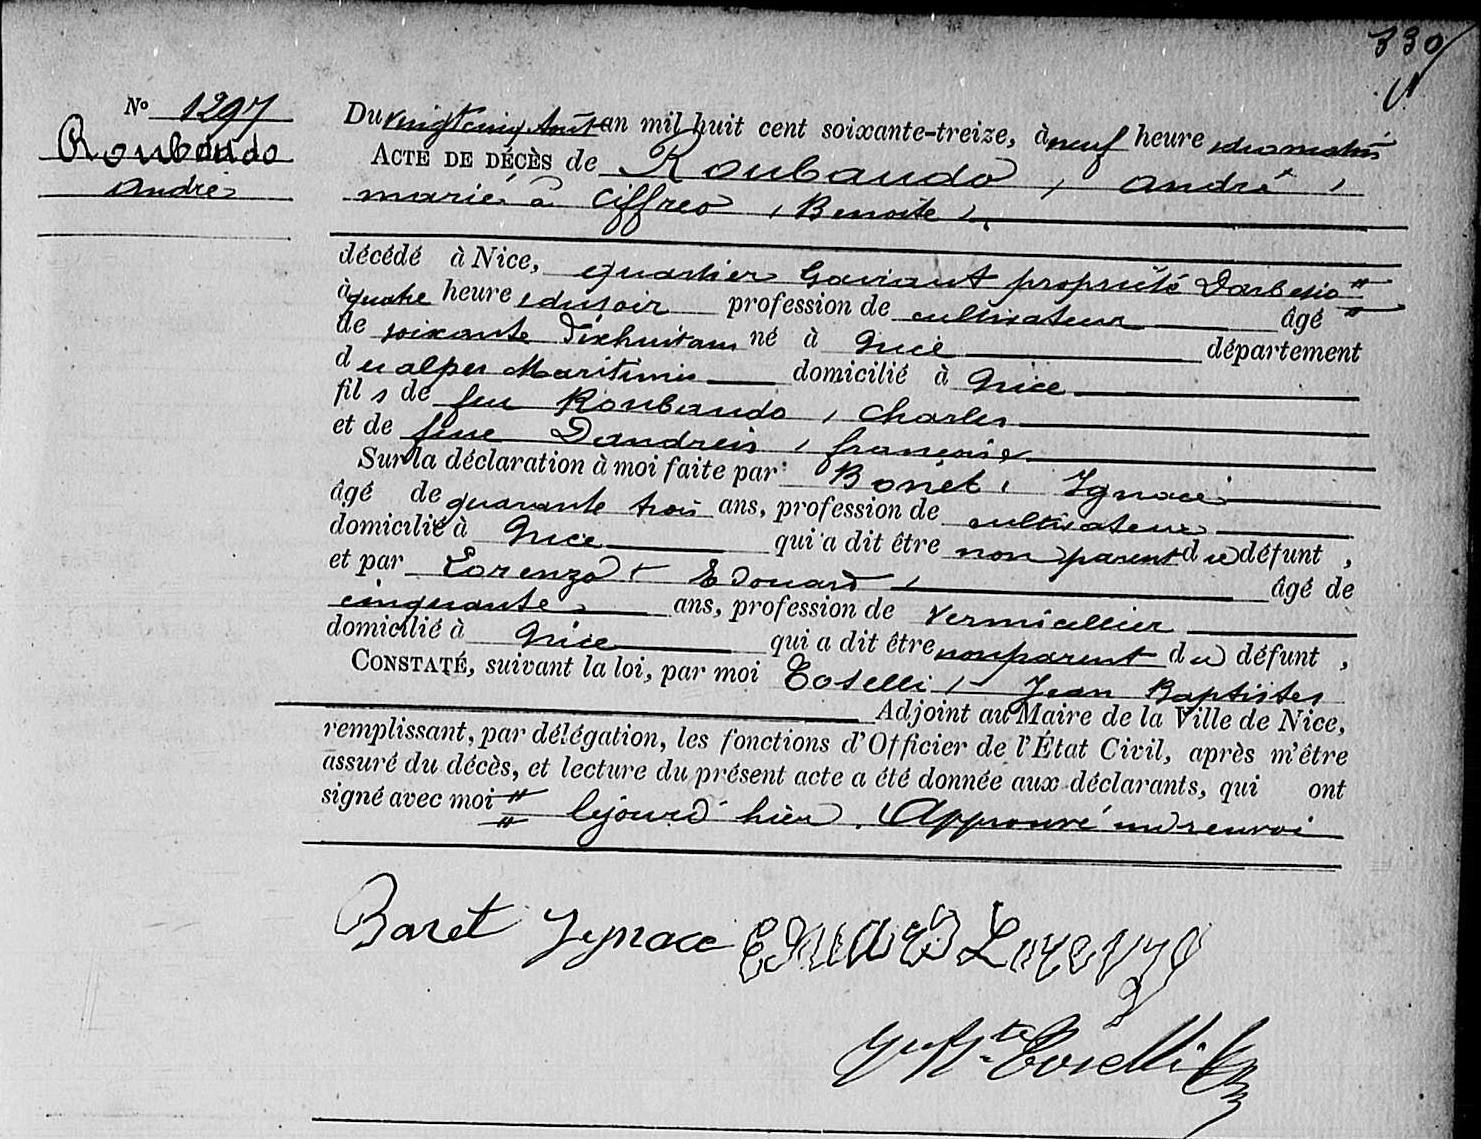 330
N° 1297
Roubaudo
André
Du vingt cinq Août an mil huit cent soixante-treize, à neuf heures du matin
ACTE DE DÉCÈS de Roubaudo, André,
marié à Ciffreo, Benoite,
décédé à Nice, quartier Gairaut propriété Darbesio "
à quatre heures du soir profession de cultivateur âgé "
de soixante dixhuit ans né à Nice département
des alpes Maritimes domicilié à Nice
fils de feu Roubaudo, Charles
et de feue Dandreis, françoise
Sur la déclaration à moi faite par Bonet, Ignace
âgé de quarante trois ans, profession de cultivateur
domicilié à Nice qui a dit être non parent du défunt,
et par Lorenzo, Edouard, âgé de
cinquante ans, profession de vermicellier
domicilié à Nice qui a dit être non parent du défunt,
CONSTATÉ, suivant la loi, par moi Toselli, Jean Baptiste
Adjoint au Maire de la Ville de Nice,
remplissant, par délégation, les fonctions d'Officier de l'État Civil, après m'être
assuré du décès, et lecture du présent acte a été donnée aux déclarants, qui ont
signé avec moi " le jour d'hier. Approuvé un renvoi
Baret Ignace Eduard Lorenzo
Toselli